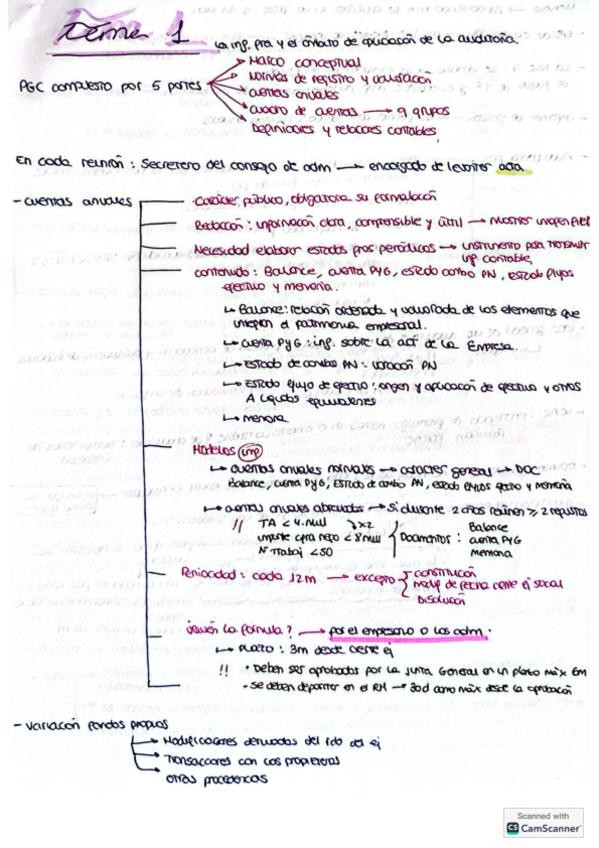 Tema 1
La inf. fra y el ámbito de aplicación de la auditoría.
Marco conceptual
Normas de registro y valoración
PGC compuesto por 5 partes
cuentas anuales
cuadro de cuentas → 9 grupos
Definiciones y relaciones contables
En cada reunión: Secretario del consejo de adm → encargado de levantar acta
- cuentas anuales
Carácter público, obligatoria su formulación
Redacción: información clara, comprensible y útil → mostrar imagen fiel
Necesidad elaborar estados fros periódicos → instrumento para transmitir
inf. contable,
contenido: Balance, cuenta PyG, estado cambio PN, estado flujos
efectivo y memoria.
↳ Balance: relación ordenada y valorada de los elementos que
integran el patrimonio empresarial.
↳ cuenta PyG: inf. sobre la act de la Empresa.
↳ estado de cambio PN: variación PN
↳ estado flujo de efectivo: origen y aplicación de efectivo y otros
A líquidos equivalentes
↳ memoria
Modelos (imp)
↳ cuentas anuales normales → carácter general → DOC
Balance, cuenta PyG, Estado de cambio PN, estado flujos efectivo y Memoria
↳ cuentas anuales abreviadas → si durante 2 años reúnen ≥ 2 requisitos
!! TA < 4.mill
importe cifra nego < 8mill
Nº Trabaj < 50
x2
Documentos:
Balance
cuenta PYG
memoria
Periocidad: cada 12m → excepto
constitución
modif de fecha cierre ej social
Disolución
¿quién la formula? → por el empresario o los adm.
↳ PLAZO: 3m desde cierre ej
!! • Deben ser aprobadas por la Junta General en un plazo máx 6m
• se deben depositar en el RM → 30d como máx desde la aprobación
- variación fondos propios
Modificaciones derivadas del rdo del ej
Transacciones con los propietarios
otras procedencias
Scanned with
CS CamScanner